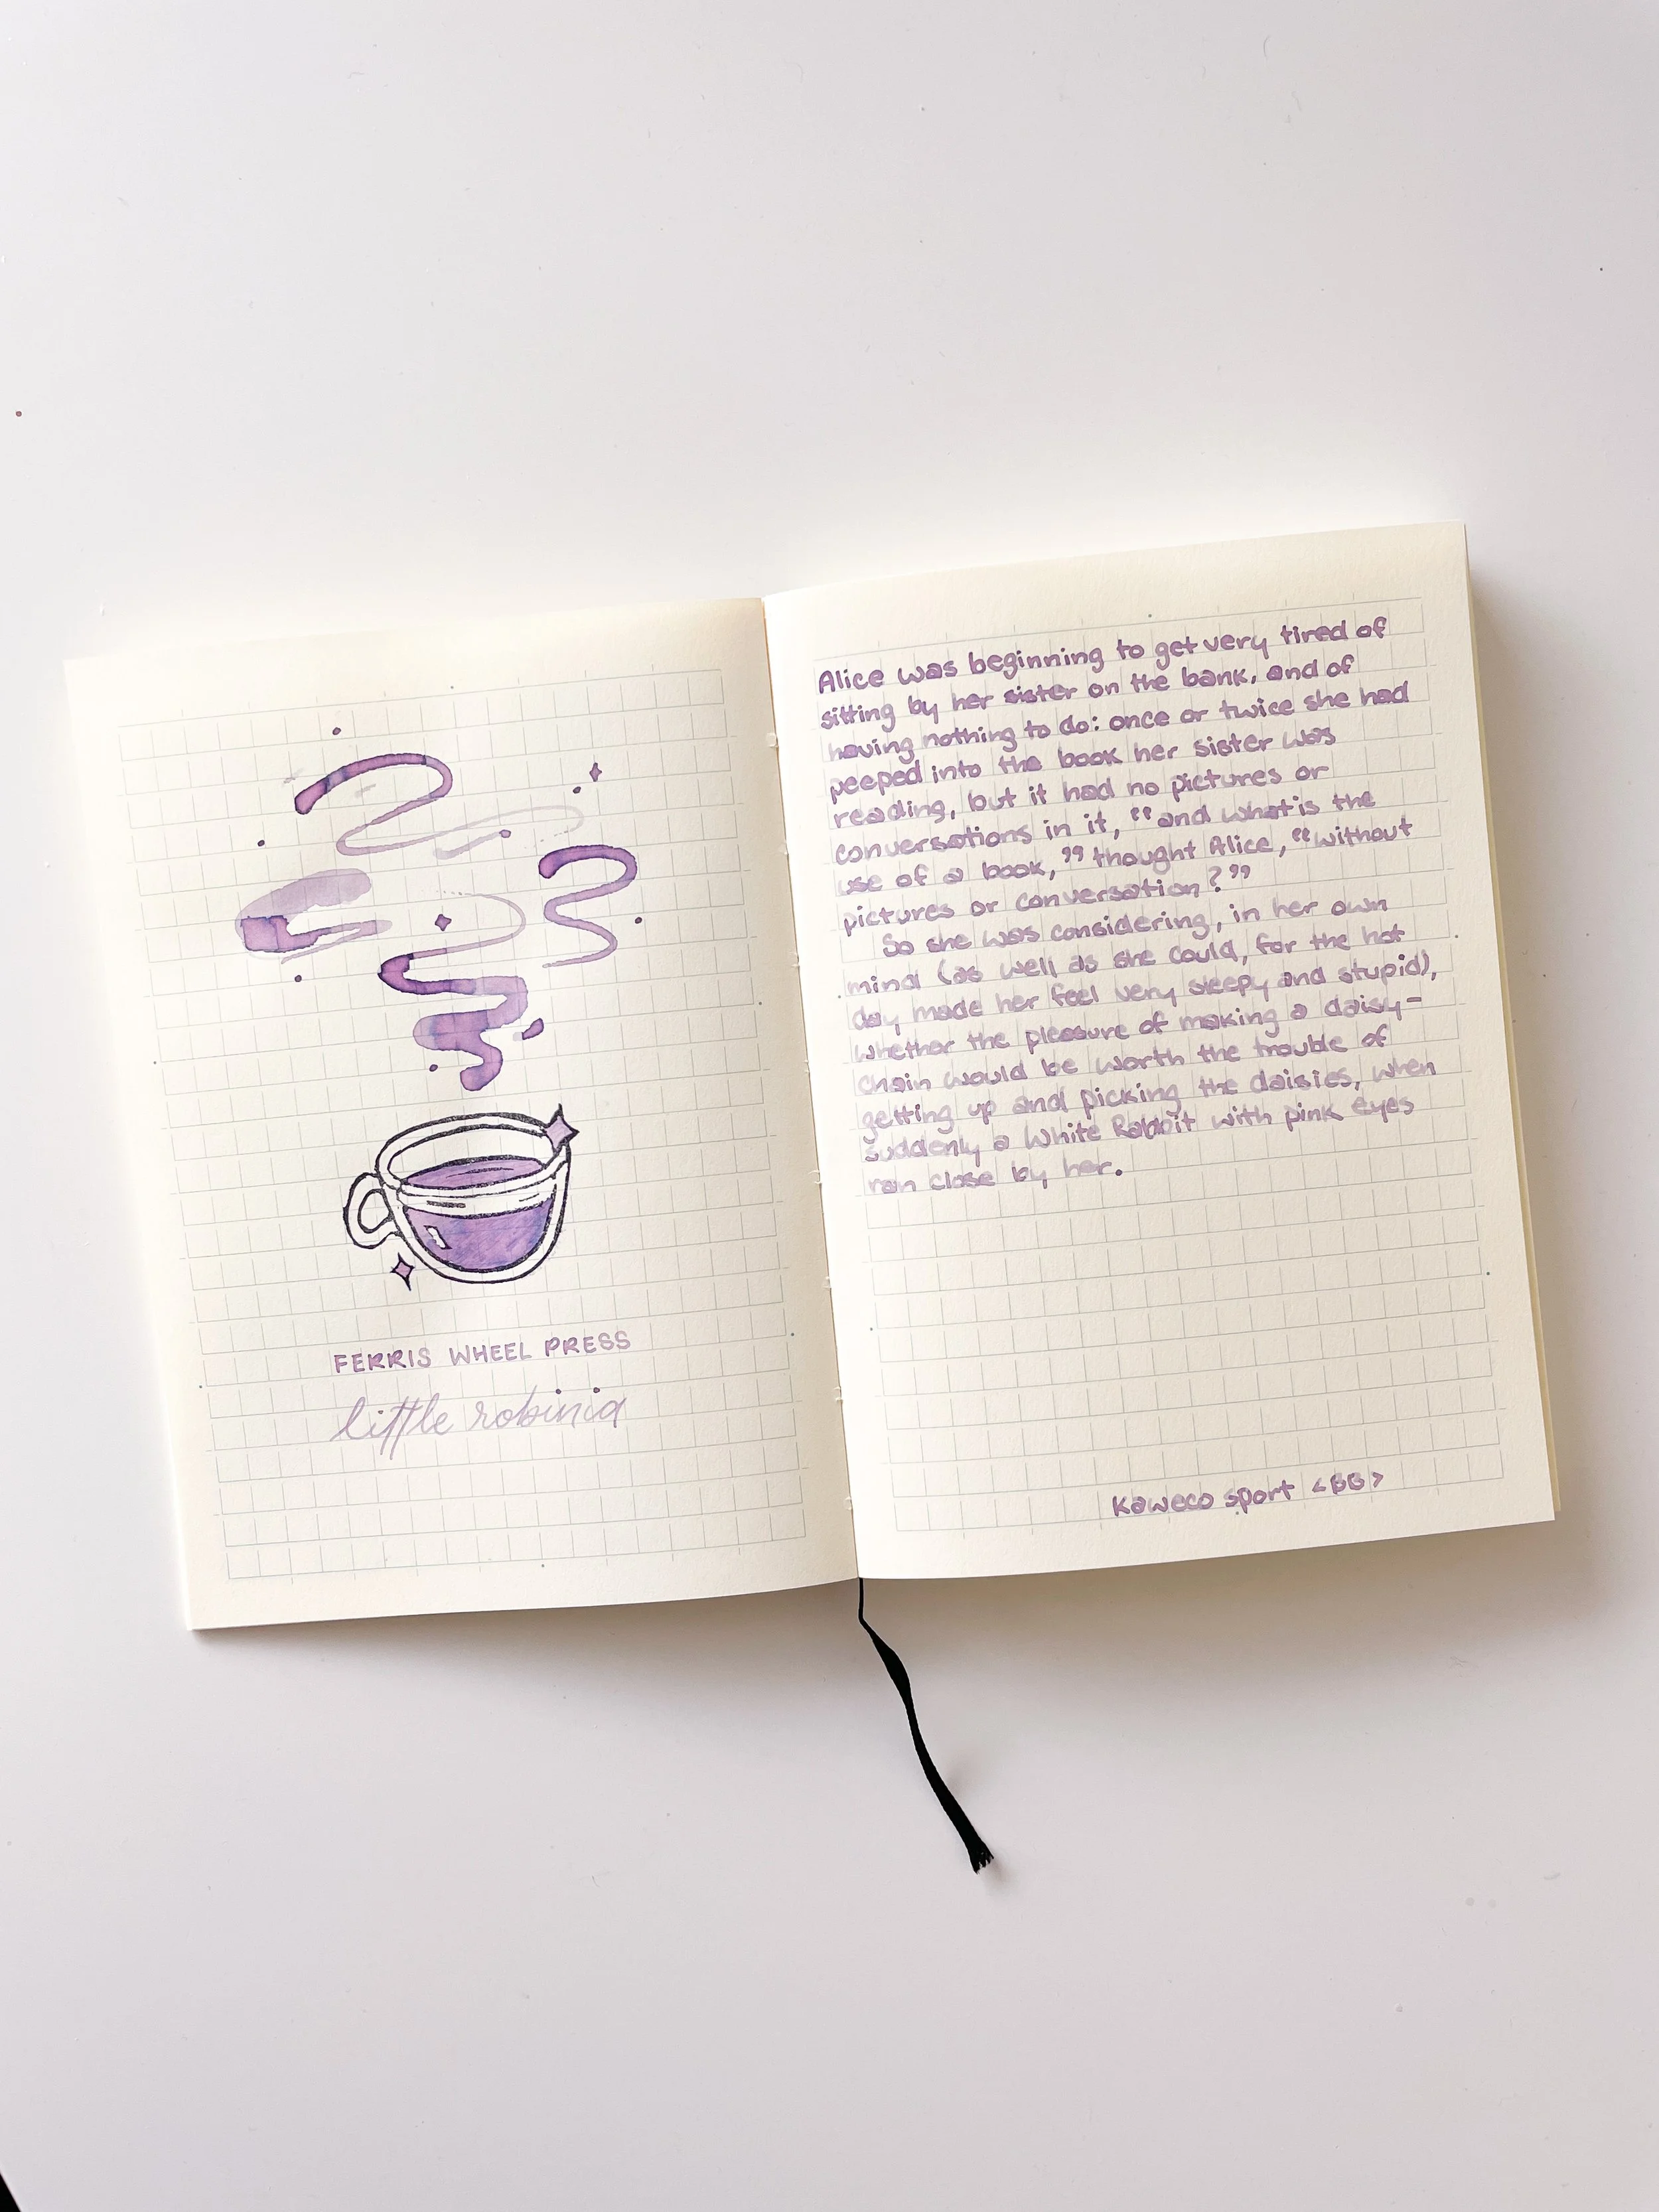 FERRIS WHEEL PRESS
little robinia
Alice was beginning to get very tired of
sitting by her sister on the bank, and of
having nothing to do: once or twice she had
peeped into the book her sister was
reading, but it had no pictures or
conversations in it, “and what is the
use of a book,” thought Alice, “without
pictures or conversation?”
So she was considering, in her own
mind (as well as she could, for the hot
day made her feel very sleepy and stupid),
whether the pleasure of making a daisy-
chain would be worth the trouble of
getting up and picking the daisies, when
suddenly a White Rabbit with pink eyes
ran close by her.
Kaweco sport <BB>